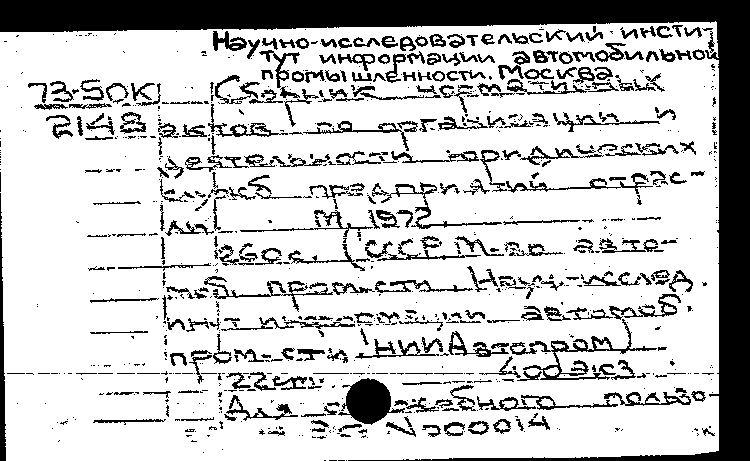 Научно-исследовательский инсти-
тут информации автомобильной
промышленности. Москва.
73-50К Сборник нормативных
2148 актов по организации и
деятельности юридических
служб предприятий отрас-
ли. М, 1972.
260с. (СССР. М-во авто-
моб. пром-сти. Науч.-исслед.
ин-т информации автомоб.
пром-сти. НИИАвтопром).
22см. 400 экз.
Для служебного пользо-
Эс. №00014